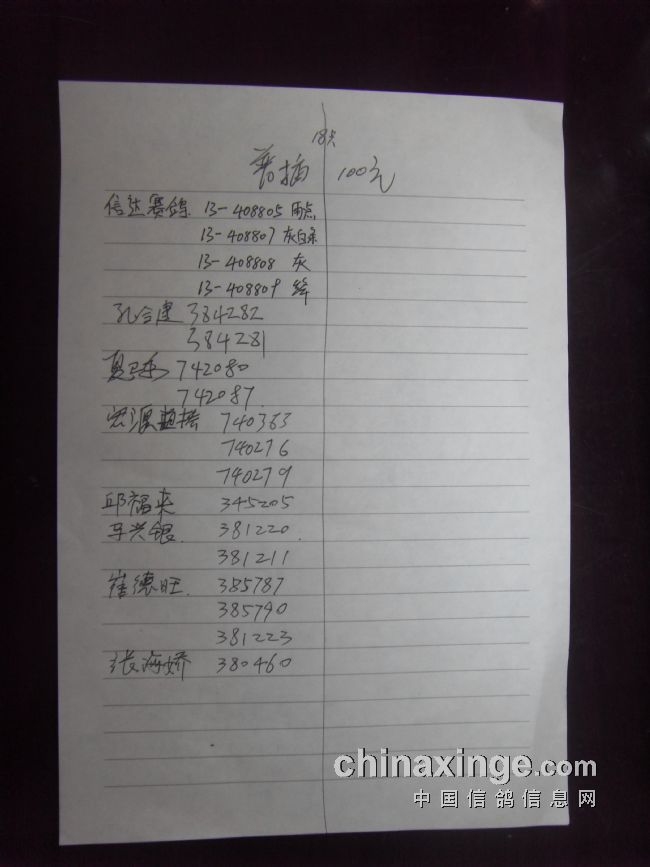 18只
普插 100元
信达赛鸽 13-408805 雨点
13-408807 灰白条
13-408808 灰
13-408809 绛
孔令建 384282
384281
夏卫东 742080
742087
宏源 740363
740276
740279
邱福来 345205
王兴银 381220
381211
崔德旺 385787
385790
381223
张海娇 380460
chinaxinge.com
中国信鸽信息网